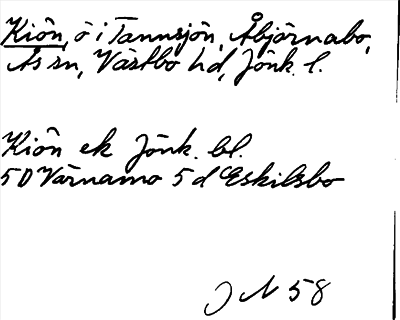 Kiön, ö i Tannsjön, Åbjörnabo,
Ås sn, Västbo hd, Jönk. l.
Kiön ek Jönk. bl.
5D Värnamo 5 d Eskilsbo
J N 58